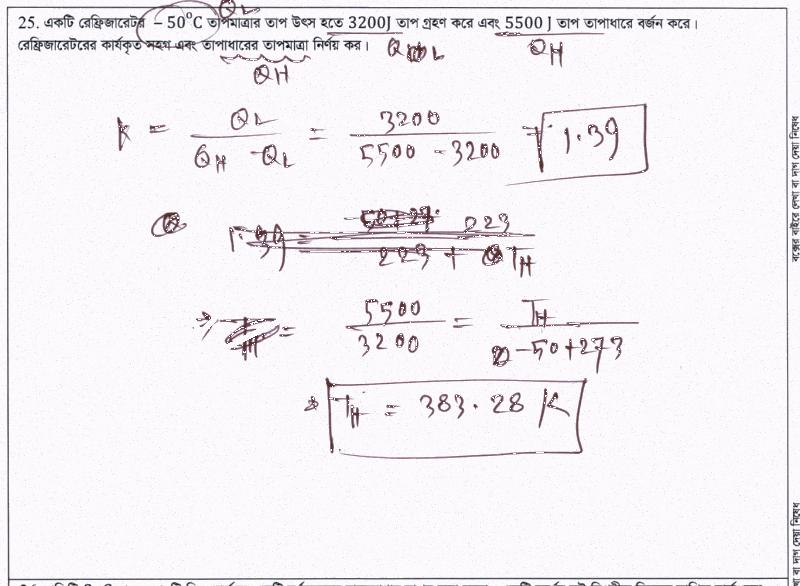 Q_L
25. একটি রেফ্রিজারেটর −50°C তাপমাত্রার তাপ উৎস হতে 3200J তাপ গ্রহণ করে এবং 5500 J তাপ তাপাধারে বর্জন করে।
রেফ্রিজারেটরের কার্যকৃত সহগ এবং তাপাধারের তাপমাত্রা নির্ণয় কর।
Q_H Q_L Q_H
K = Q_L / (Q_H − Q_L) = 3200 / (5500 − 3200) = 1.39
223
223 + T_H
5500 / 3200 = T_H / (−50+273)
T_H = 383.28 K
বক্সের বাইরে লেখা বা দাগ দেয়া নিষেধ
বা দাগ দেয়া নিষেধ